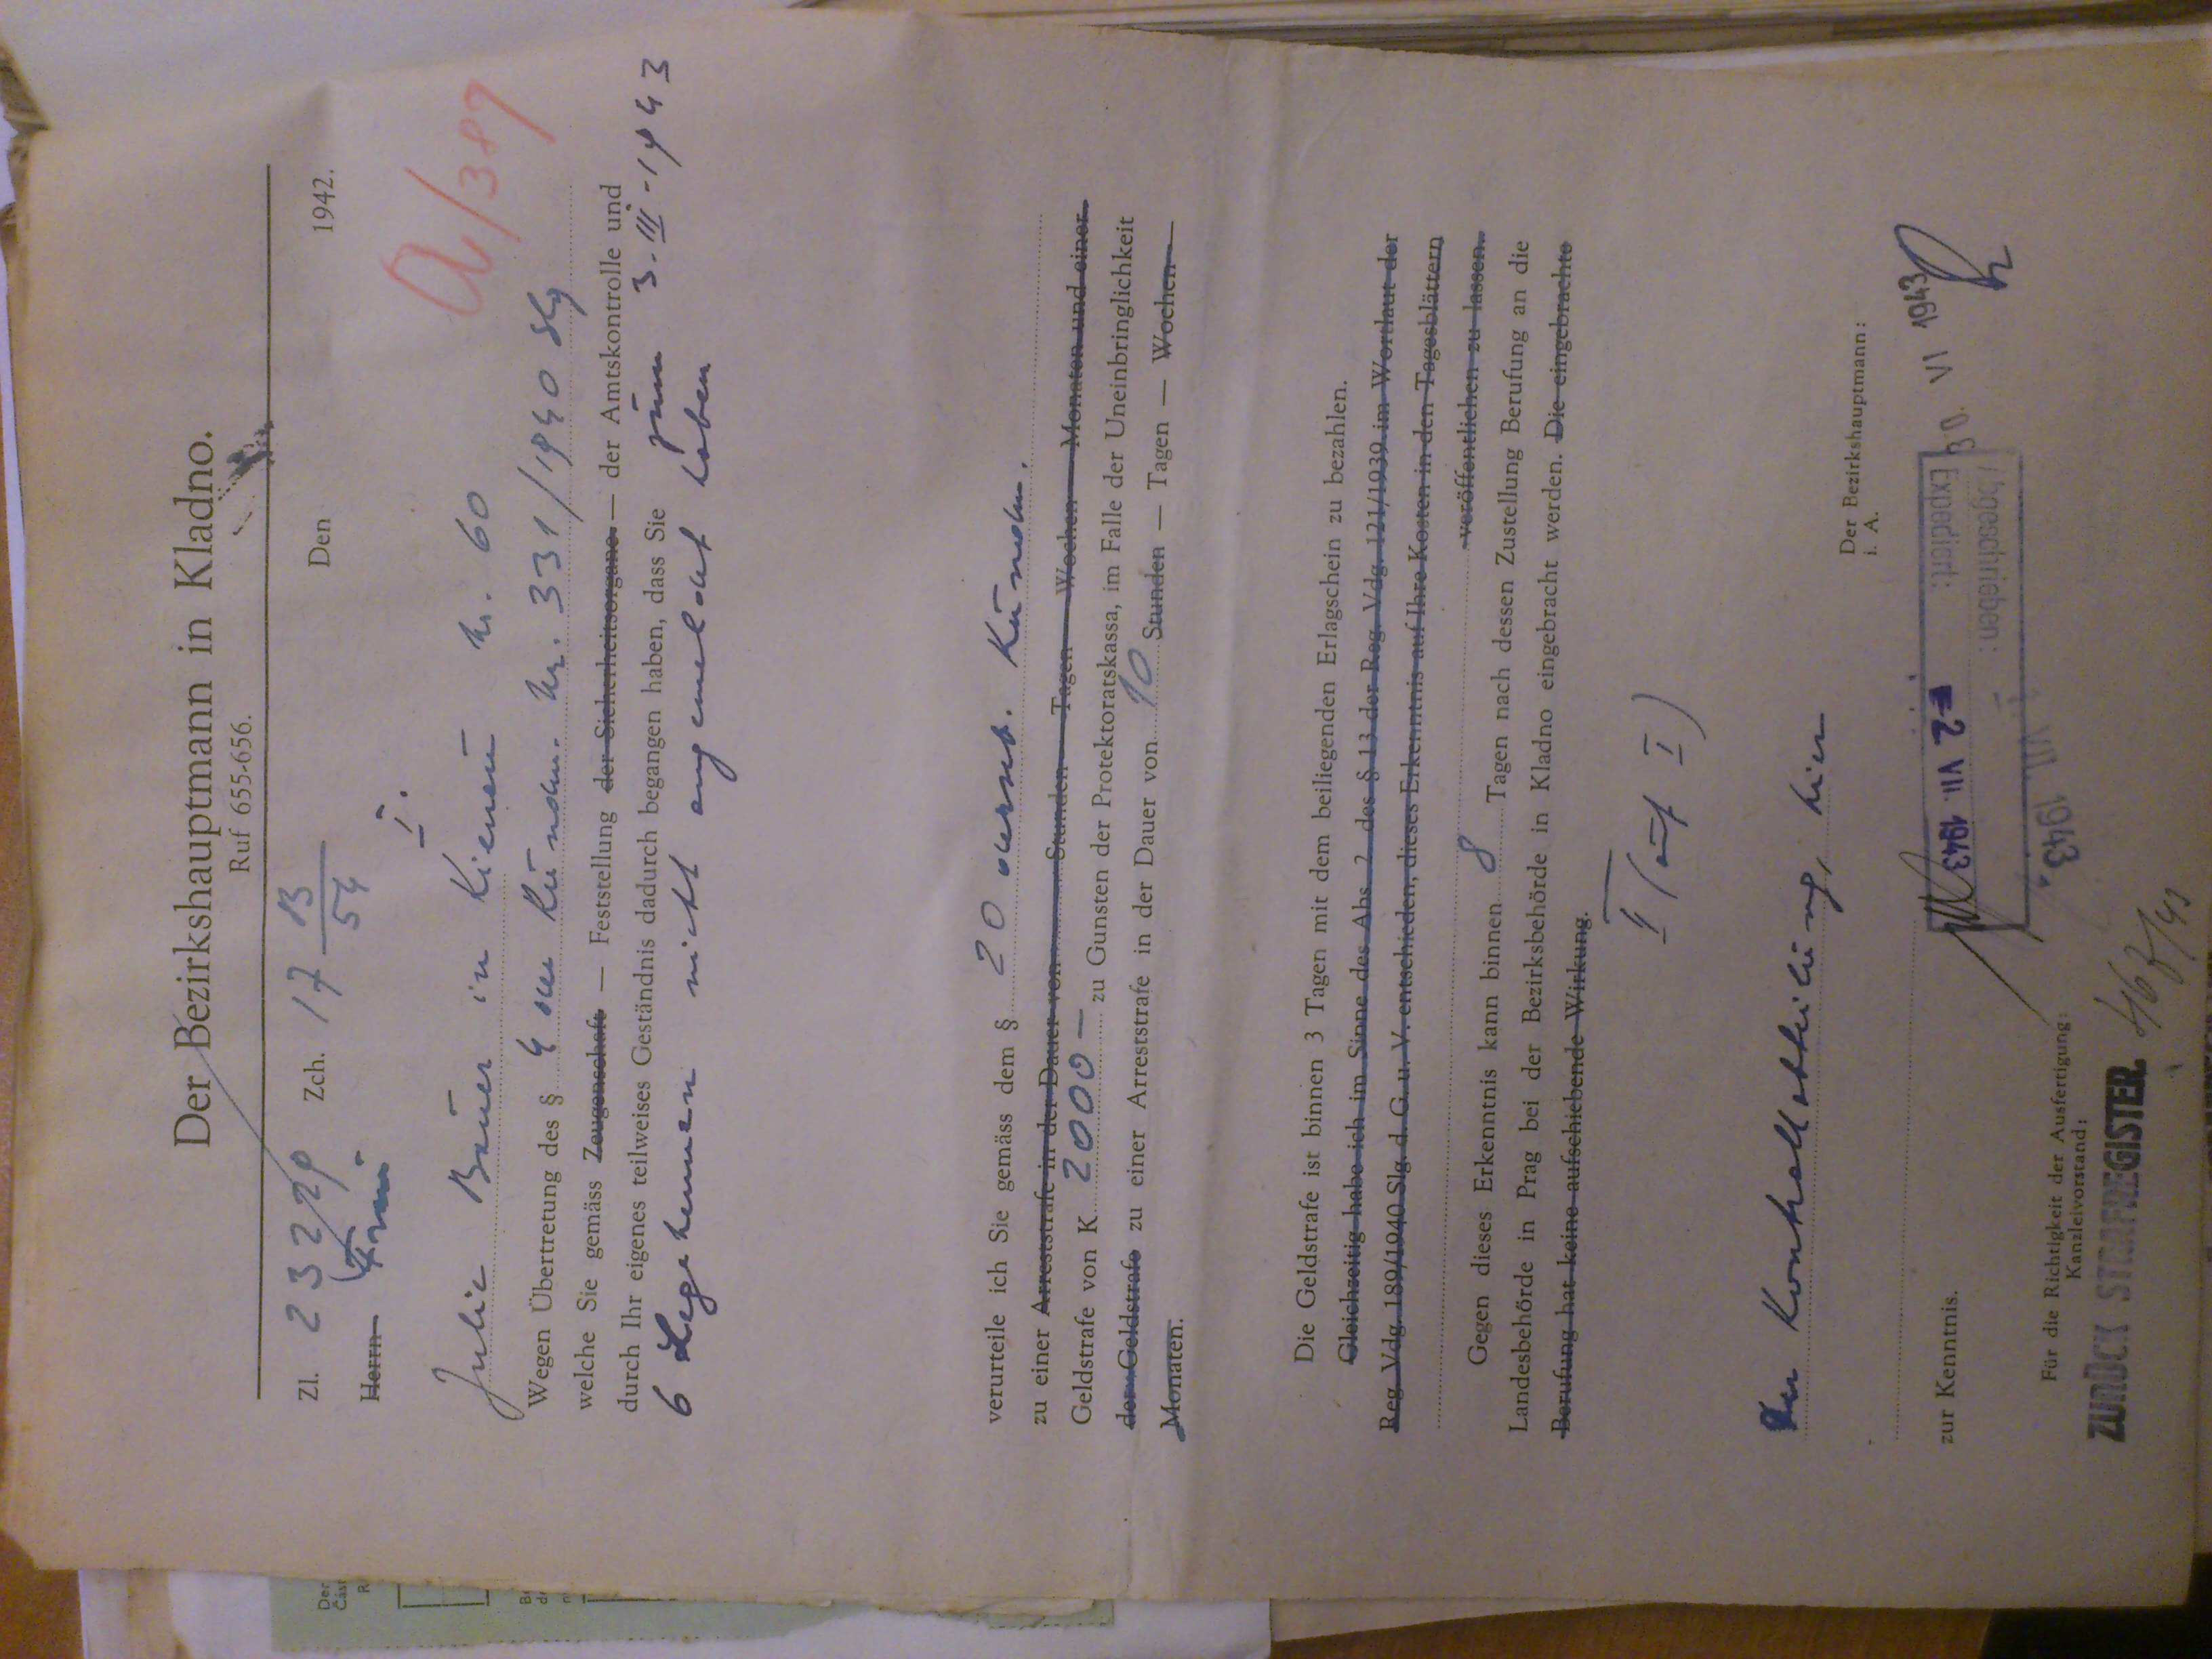 Der Bezirkshauptmann in Kladno.
Ruf 655-656.
Zl. 23229 Zch. 17 B/54 Den 1942.
Herrn Frau
I.
Julie Bauer in Kienau Nr. 60
a/389
Wegen Übertretung des § 4 der Kundm. Nr. 331/1940 Slg
welche Sie gemäss Zeugenschaft — Feststellung der Sicherheitsorgane — der Amtskontrolle und
durch Ihr eigenes teilweises Geständnis dadurch begangen haben, dass Sie zum 3.III.1943
6 Legehennen nicht angemeldet haben
verurteile ich Sie gemäss dem § 20 derselb. Kundm.
zu einer Arreststrafe in der Dauer von Stunden — Tagen — Wochen — Monaten und einer
Geldstrafe von K 2000— zu Gunsten der Protektoratskassa, im Falle der Uneinbringlichkeit
der Geldstrafe zu einer Arreststrafe in der Dauer von 10 Stunden — Tagen — Wochen —
Monaten.
Die Geldstrafe ist binnen 3 Tagen mit dem beiliegenden Erlagschein zu bezahlen.
Gleichzeitig habe ich im Sinne des Abs. 2 des § 13 der Reg. Vdg. 121/1939 im Wortlaut der
Reg. Vdg. 189/1940 Slg. d. G. u. V. entschieden, dieses Erkenntnis auf Ihre Kosten in den Tagesblättern
veröffentlichen zu lassen.
Gegen dieses Erkenntnis kann binnen 8 Tagen nach dessen Zustellung Berufung an die
Landesbehörde in Prag bei der Bezirksbehörde in Kladno eingebracht werden. Die eingebrachte
Berufung hat keine aufschiebende Wirkung.
II (auf I)
Der Kontrollabteilung, hier
Der Bezirkshauptmann:
i. A.
zur Kenntnis.
30. VI 1943
Expediert: 2. VII. 1943
Abgeschrieben:
VII. 1943
Für die Richtigkeit der Ausfertigung:
Kanzleivorstand:
ZURÜCK STRAFREGISTER.
467/43